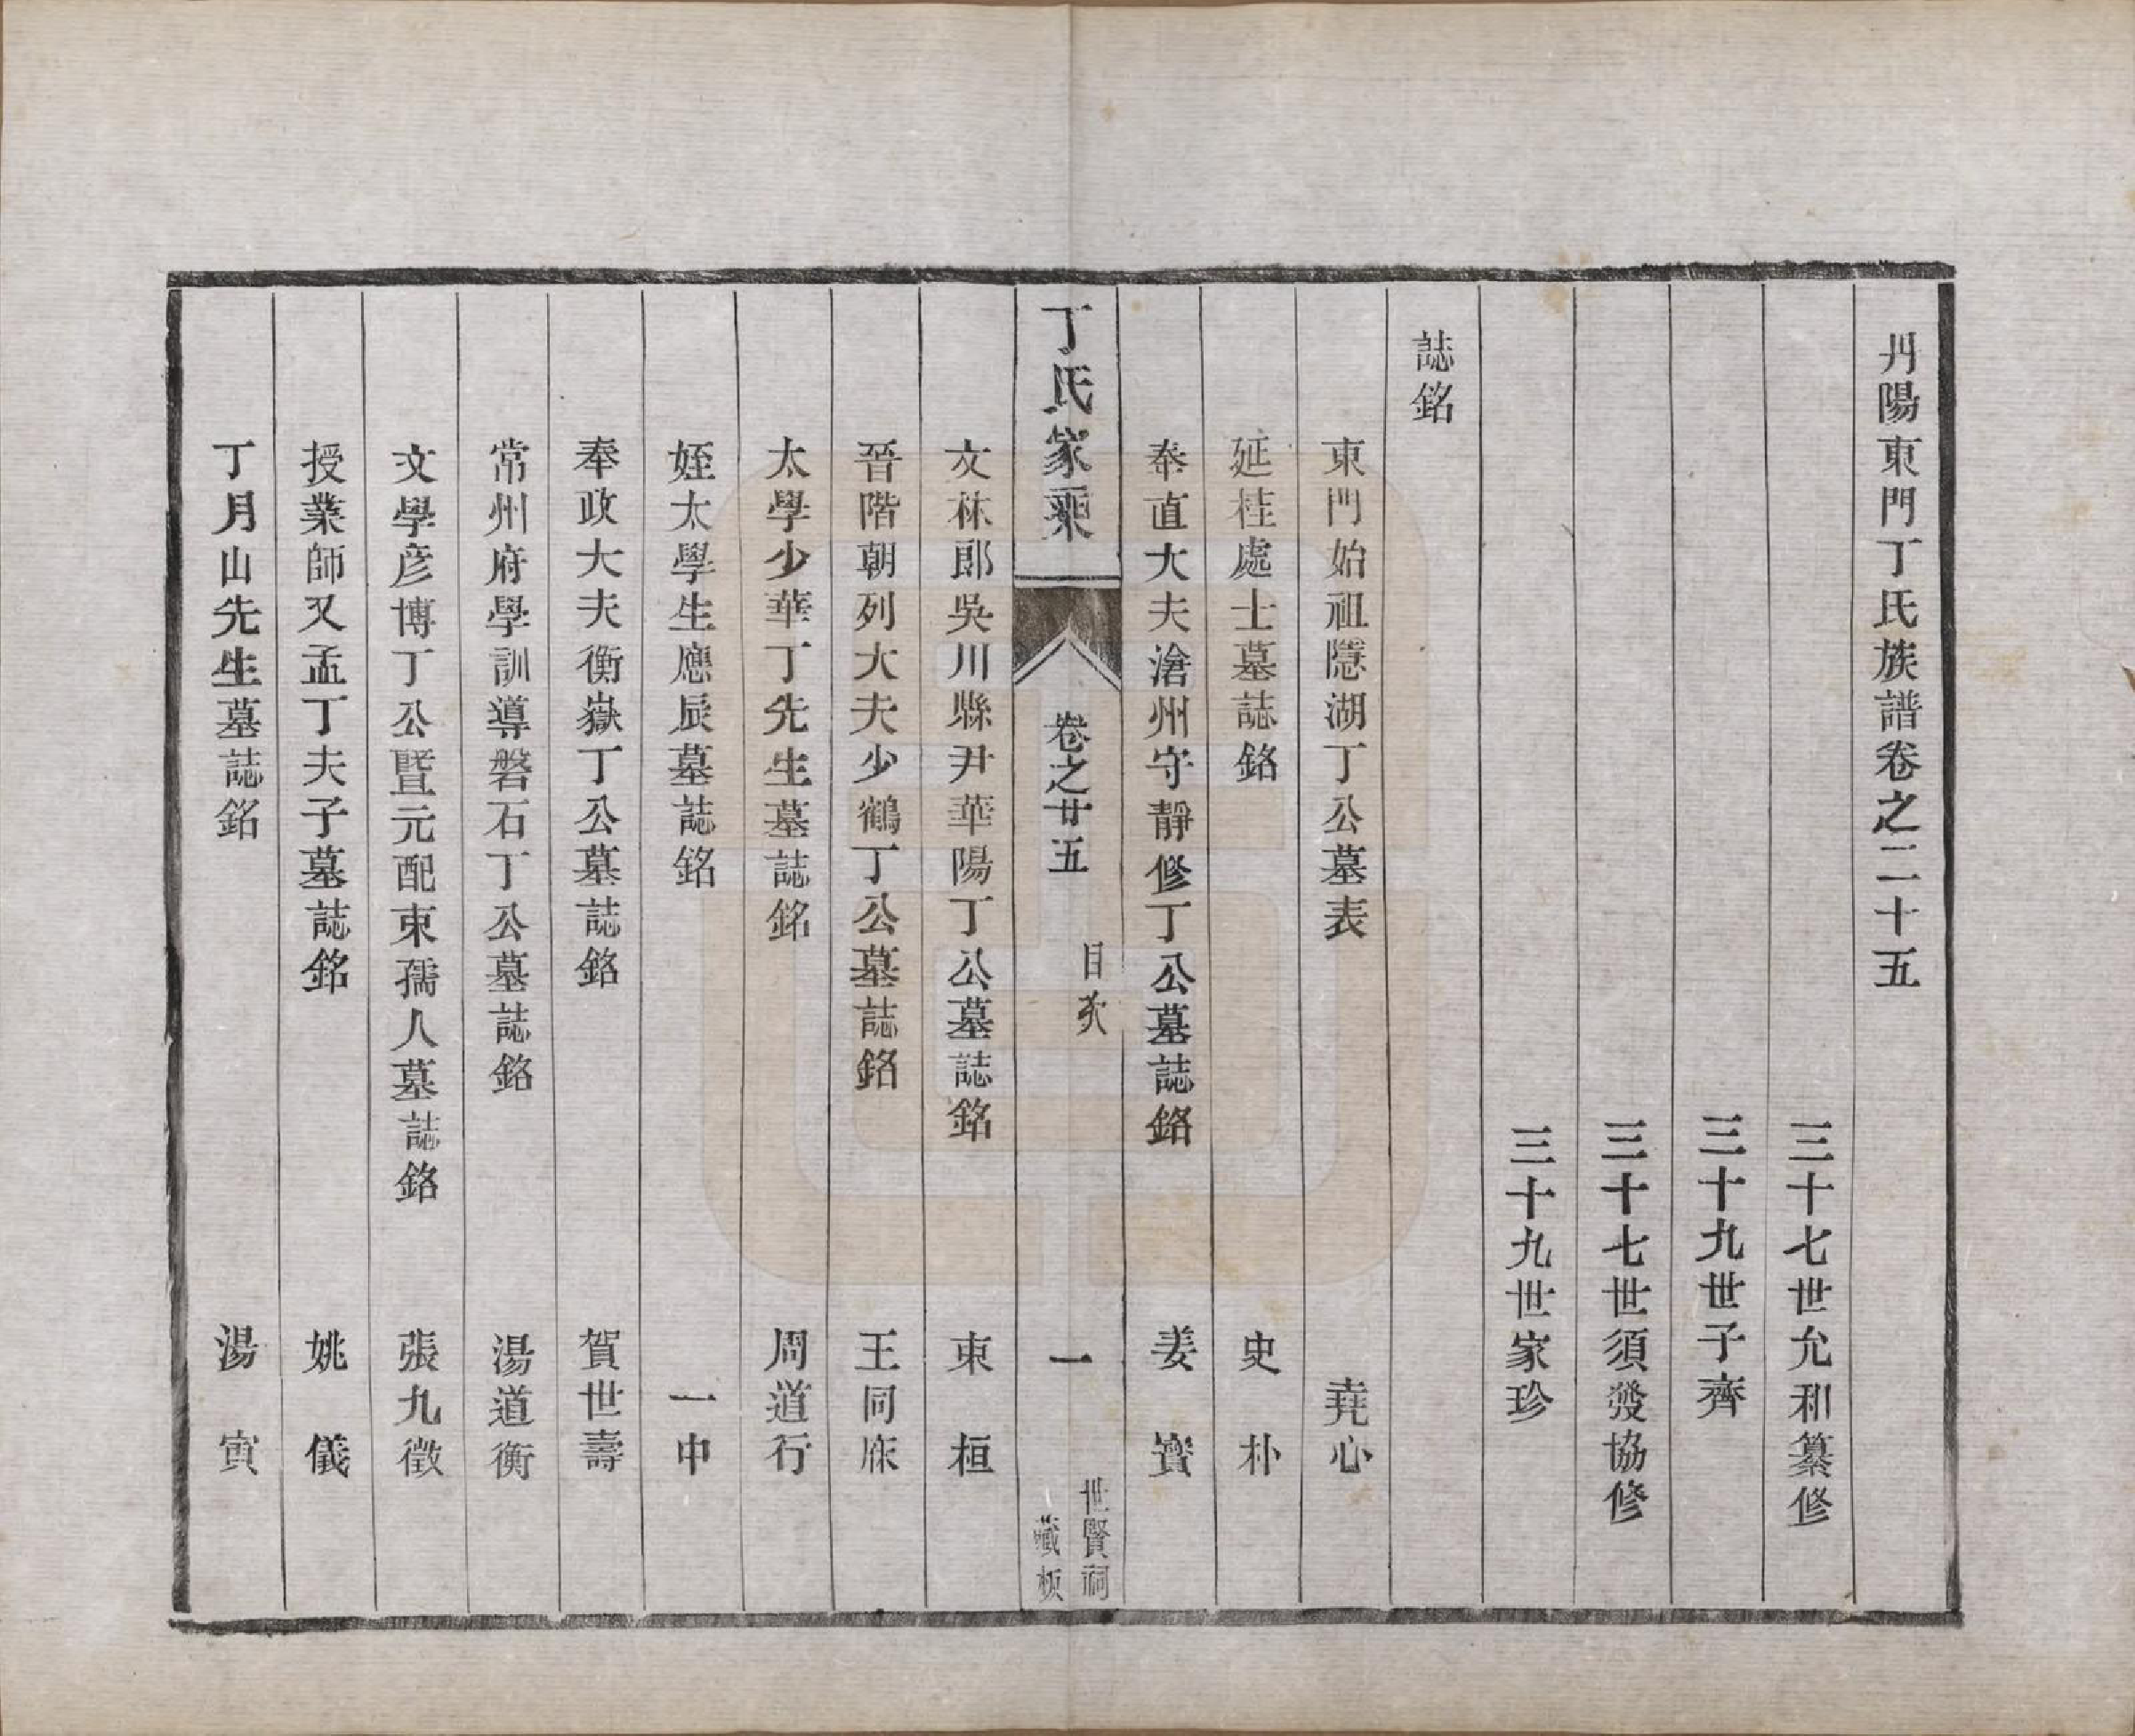 丹陽東門丁氏族譜卷之二十五
三十七世允和纂修
三十九世子齊
三十七世須發協修
三十九世家珍
誌銘
東門始祖隱湖丁公墓表　堯心
延桂處士墓誌銘　史朴
奉直大夫滄州守靜修丁公墓誌銘　姜寶
丁氏家乘　卷之廿五　目次　一　世賢祠藏板
文林郎吳川縣尹華陽丁公墓誌銘　束桓
晉階朝列大夫少鶴丁公墓誌銘　王同庥
太學少華丁先生墓誌銘　周道行
姪太學生應辰墓誌銘　一中
奉政大夫衡嶽丁公墓誌銘　賀世壽
常州府學訓導磐石丁公墓誌銘　湯道衡
文學彦博丁公暨元配束孺人墓誌銘　張九徵
授業師又孟丁夫子墓誌銘　姚儀
丁月山先生墓誌銘　湯寅